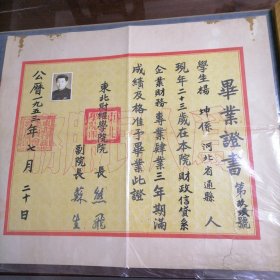 畢業證書
第 號
學生楊坤 係河北省通縣人
現年二十三歲在本院財政信貸系
企業財務專業肄業三年期滿
成績及格准予畢業此證
東北財經學院院長
副院長蘇生
公曆一九五三年七月二十日